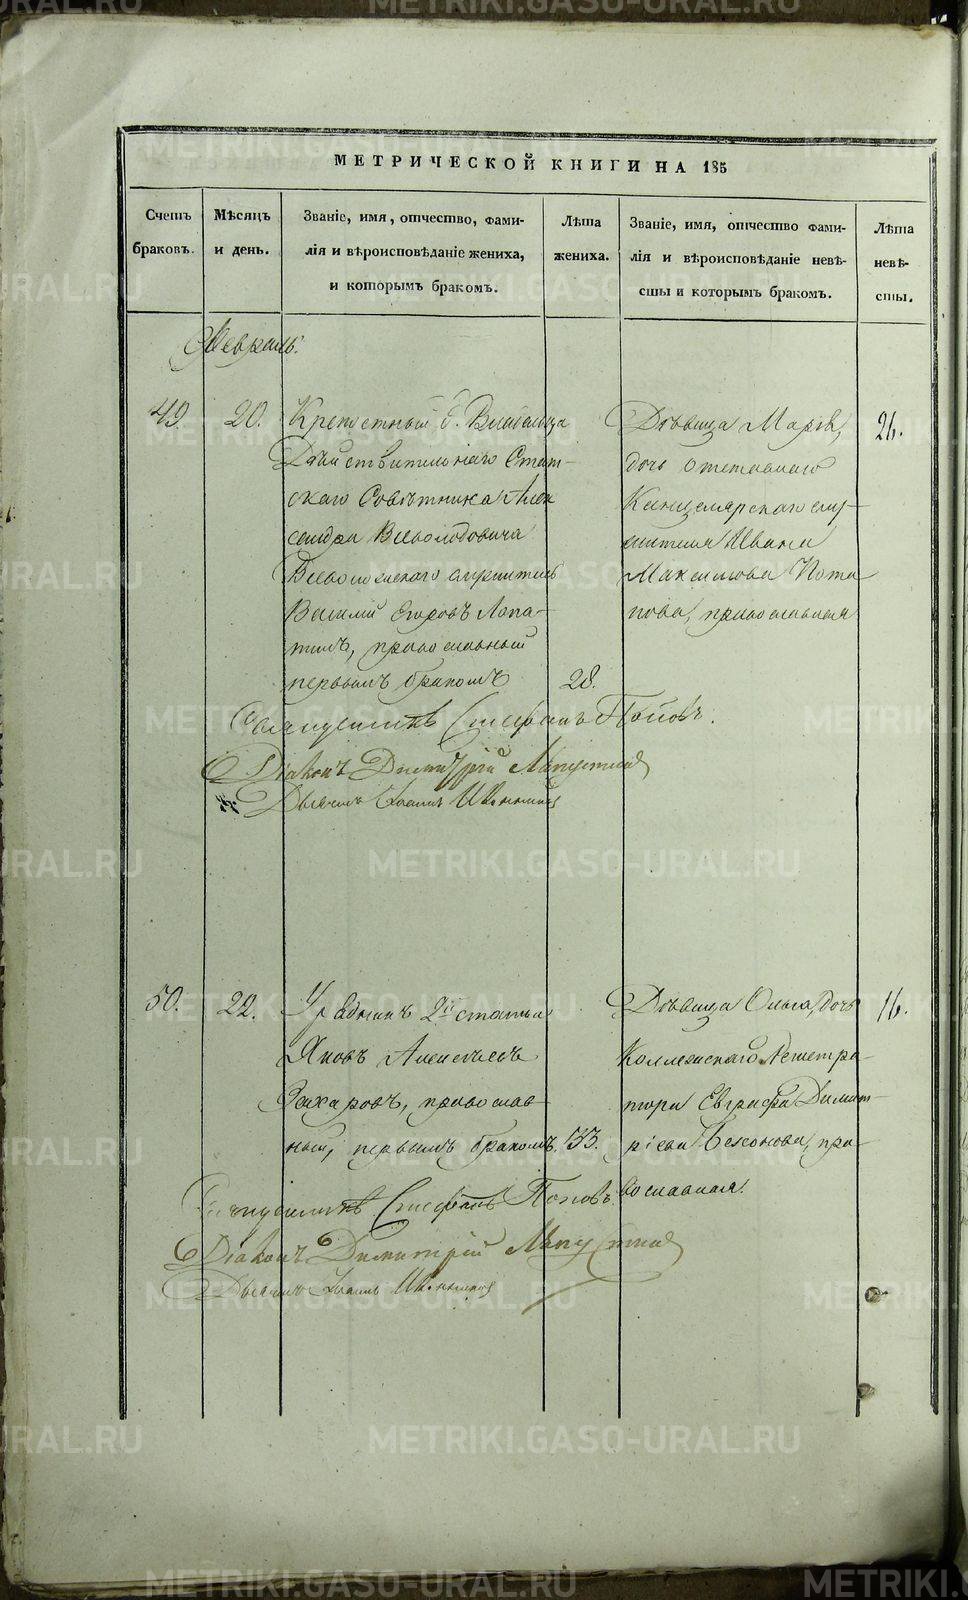 МЕТРИЧЕСКОЙ КНИГИ НА 185
Счетъ
браковъ.
Мѣсяцъ
и день.
Званіе, имя, отчество, фами-
лія и вѣроисповѣданіе жениха,
и которымъ бракомъ.
Лѣта
жениха.
Званіе, имя, отчество фами-
лія и вѣроисповѣданіе невѣ-
сты и которымъ бракомъ.
Лѣта
невѣ-
сты.
Февраль.
49.
20.
Крепостный Г. Владельца
Дѣйствительнаго Стат-
скаго Совѣтника Алек
сандра Всеволодовича
Всеволожскаго служитель
Василий Егоровъ Лопа-
тинъ, православный
первымъ бракомъ
28.
Дѣвица Марія,
дочь отставнаго
Канцелярскаго слу-
жителя Ивана
Максимова Пота
пова, православная
26.
Священникъ Стефанъ Поповъ.
Діаконъ Димитрій
Дьячекъ Іоаннъ
50.
22.
Урядникъ 2й статьи
Яковъ Алексѣевъ
Захаровъ, православ-
ный, первымъ бракомъ.
33.
Дѣвица Ольга, дочь
Коллежскаго Регистра-
тора Евграфа Димит-
ріева, пра-
вославная.
16.
Священникъ Стефанъ Поповъ.
Діаконъ Димитрій
Дьячекъ Іоаннъ
METRIKI.GASO-URAL.RU